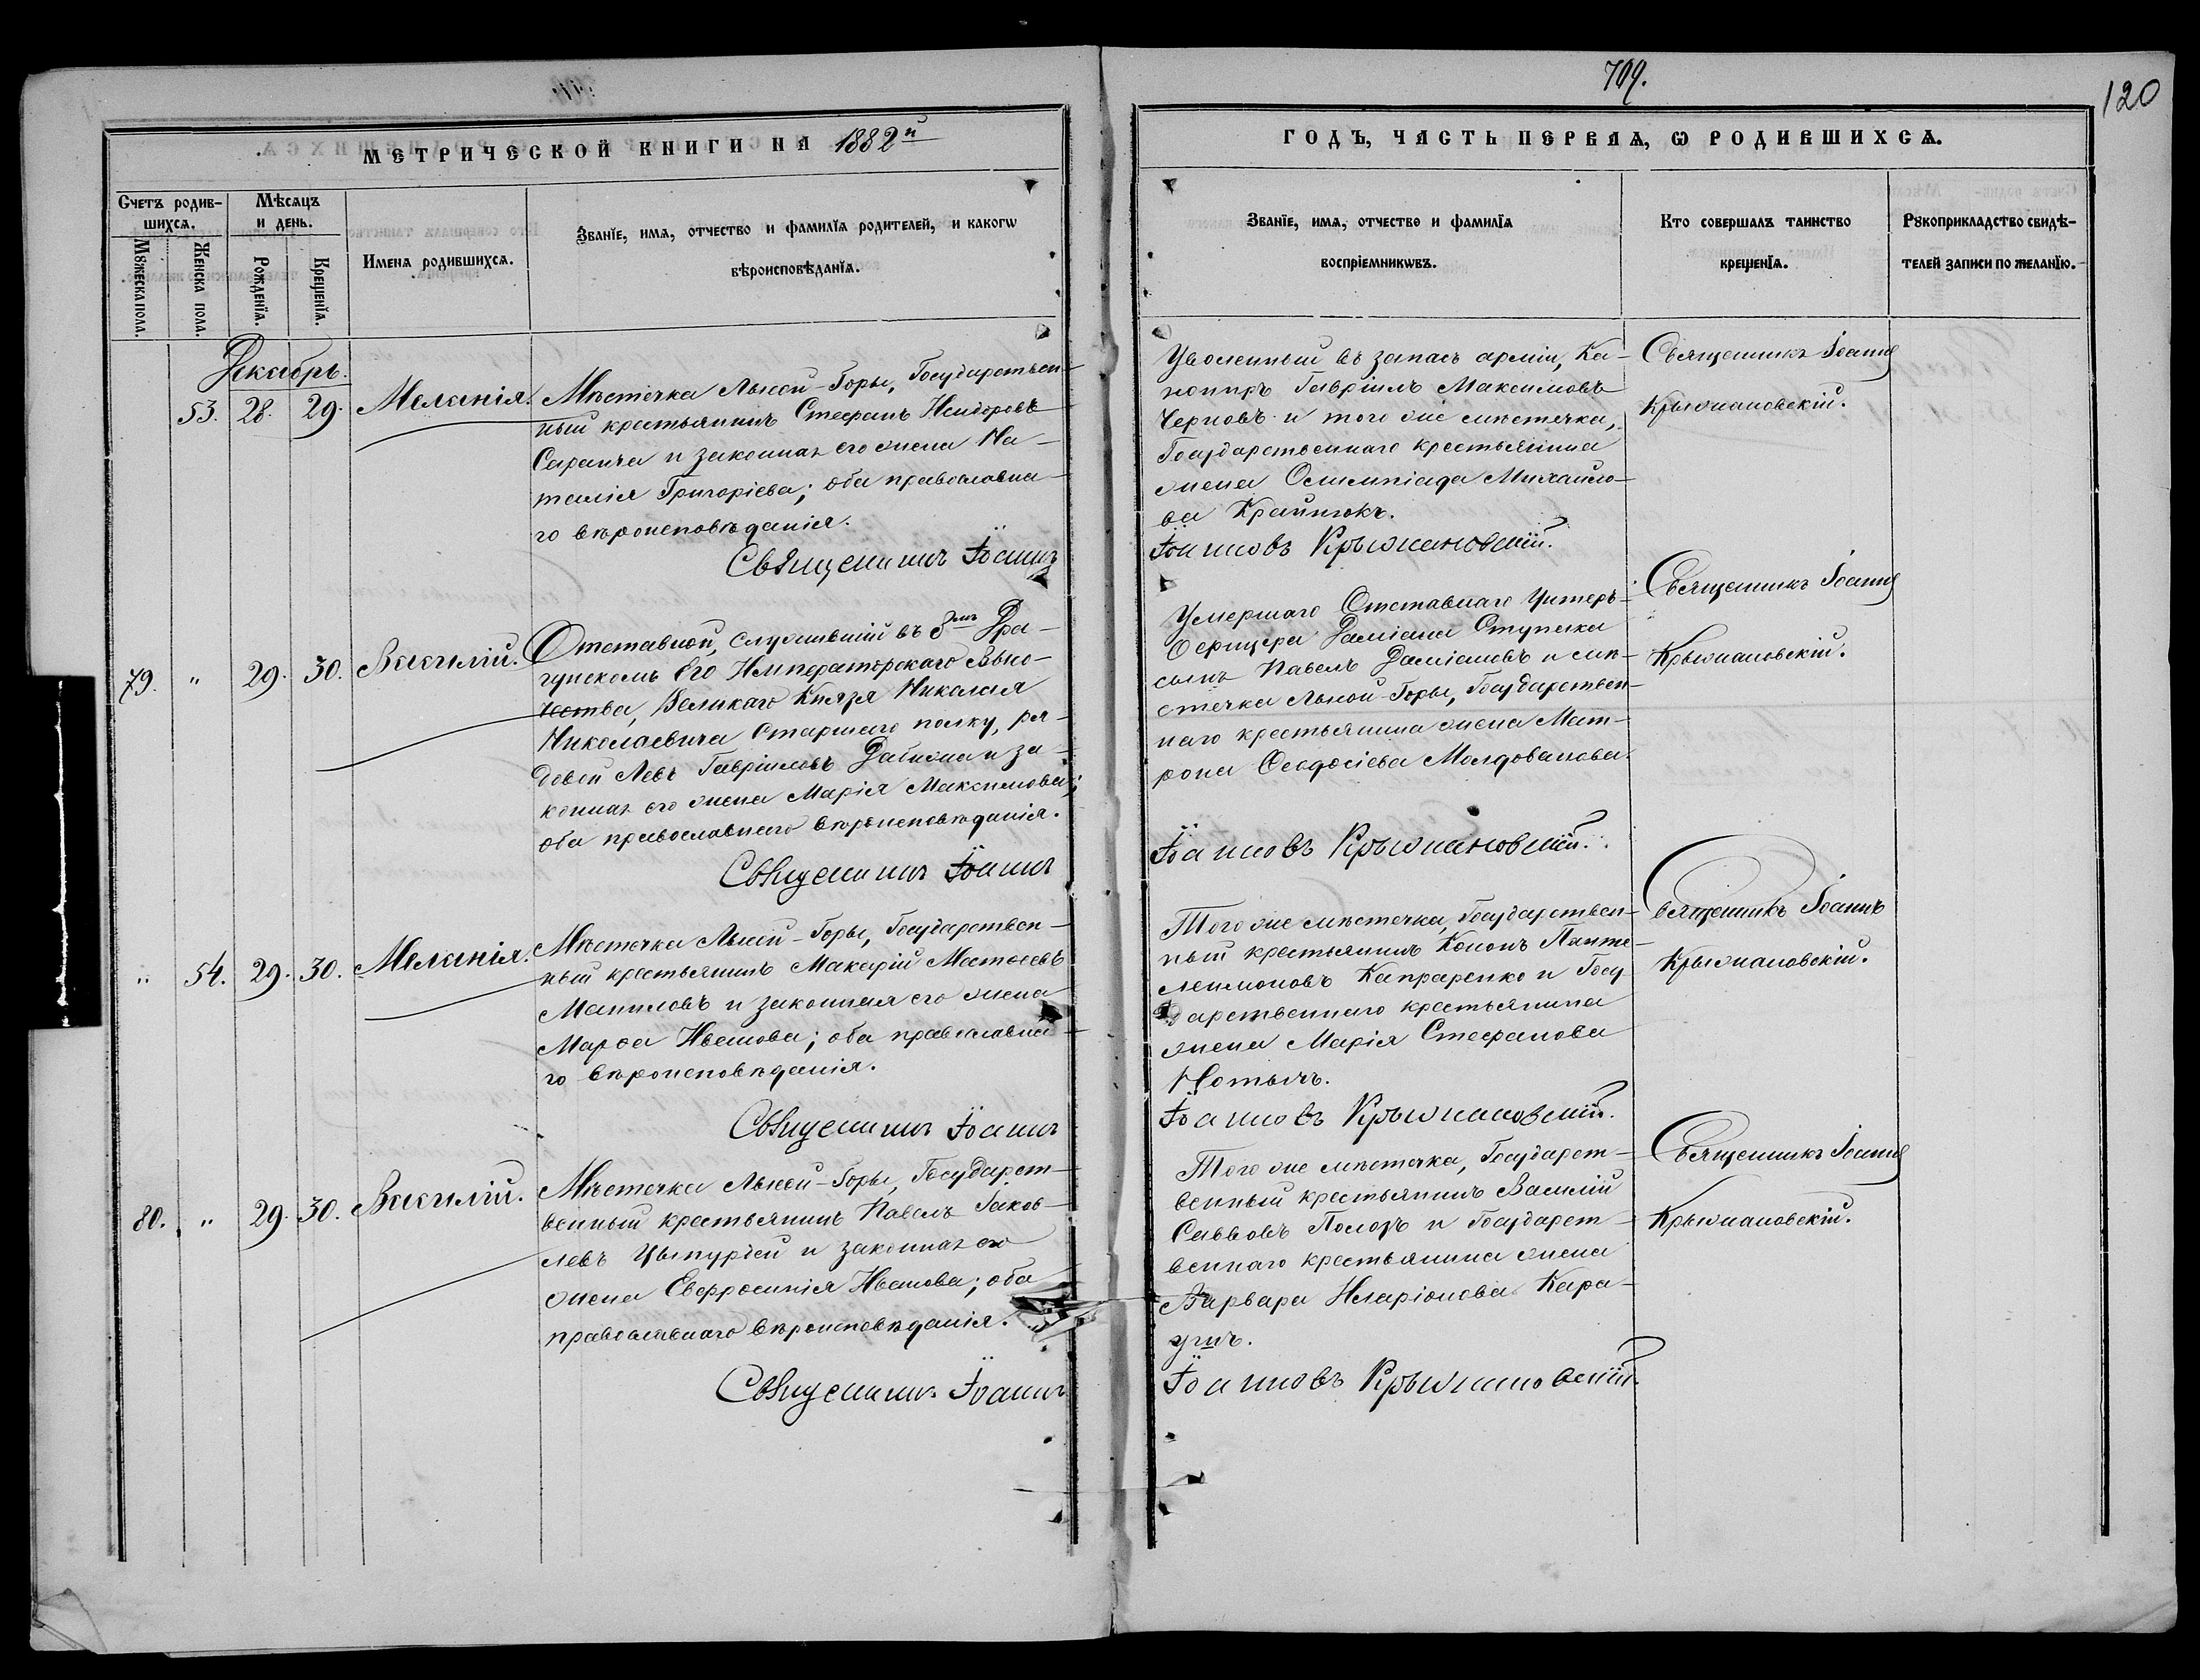 709.
120
МЕТРИЧЕСКОЙ КНИГИ НА 1882й
ГОДЪ, ЧАСТЬ ПЕРВАЯ, Ѡ РОДИВШИХСѦ.
Счетъ родив-
шихсѧ.
Мѣсяцъ
и день.
Мꙋжеска пола.
Женска пола.
Рожденїѧ.
Крещенїѧ.
Имена родившихсѧ.
Званїе, имѧ, отчество и фамилїѧ родителей, и какогѡ
вѣроисповѣданїѧ.
Званїе, имѧ, отчество и фамилїѧ
воспрїемникѡвъ.
Кто совершалъ таинство
крещенїѧ.
Рꙋкоприкладство свидѣ-
телей записи по желанїю.
Декабрь.
53. 28. 29. Меланія.
Мѣстечка Лысой-Горы, Государствен-
ный крестьянинъ Стефанъ Исидоровъ
Саранча и законная его жена На-
талія Григоріева; оба православна-
го вѣроисповѣданія.
Священникъ Іоаннъ
Уволенный въ запасъ арміи, Ка-
нониръ Гавріилъ Максимовъ
Черновъ и того же мѣстечка,
Государственнаго крестьянина
жена Олимпіада Михайло-
ва Крайнюкъ.
Іоанновъ Крыжановскій.
Священникъ Іоаннъ
Крыжановскій.
79. " 29. 30. Василій.
Отставной, служившій въ 3мъ Дра-
гунскомъ Его Императорскаго Высо-
чества, Великаго Князя Николая
Николаевича Старшаго полку, ря-
довой Левъ Гавріиловъ Дабижа и за-
конная его жена Марія Максимова;
оба православнаго вѣроисповѣданія.
Священникъ Іоаннъ
Умершаго Отставнаго Унтеръ-
Офицера Даміана Ступака
сынъ Павелъ Даміановъ и мѣ-
стечка Лысой-Горы, Государствен-
наго крестьянина жена Мат-
рона Ѳеодосіева Молдованова.
Іоанновъ Крыжановскій.
Священникъ Іоаннъ
Крыжановскій.
" 54. 29. 30. Меланія.
Мѣстечка Лысой-Горы, Государствен-
ный крестьянинъ Макарій Матѳеевъ
Маниловъ и законная его жена
Марѳа Иванова; оба православна-
го вѣроисповѣданія.
Священникъ Іоаннъ
Того же мѣстечка, Государствен-
ный крестьянинъ Кононъ Панте-
леимоновъ Капраренко и Госу
дарственнаго крестьянина
жена Марія Стефанова
Іоанновъ Крыжановскій.
Священникъ Іоаннъ
Крыжановскій.
80. " 29. 30. Василій.
Мѣстечка Лысой-Горы, Государст-
венный крестьянинъ Павелъ Іаков-
левъ Цыпурдей и законная его
жена Евфросинія Иванова; оба
православнаго вѣроисповѣданія.
Священникъ Іоаннъ
Того же мѣстечка, Государст-
венный крестьянинъ Василій
Савовъ Полозъ и Государст-
веннаго крестьянина жена
Варвара Иларіонова Кара-
Іоанновъ Крыжановскій.
Священникъ Іоаннъ
Крыжановскій.